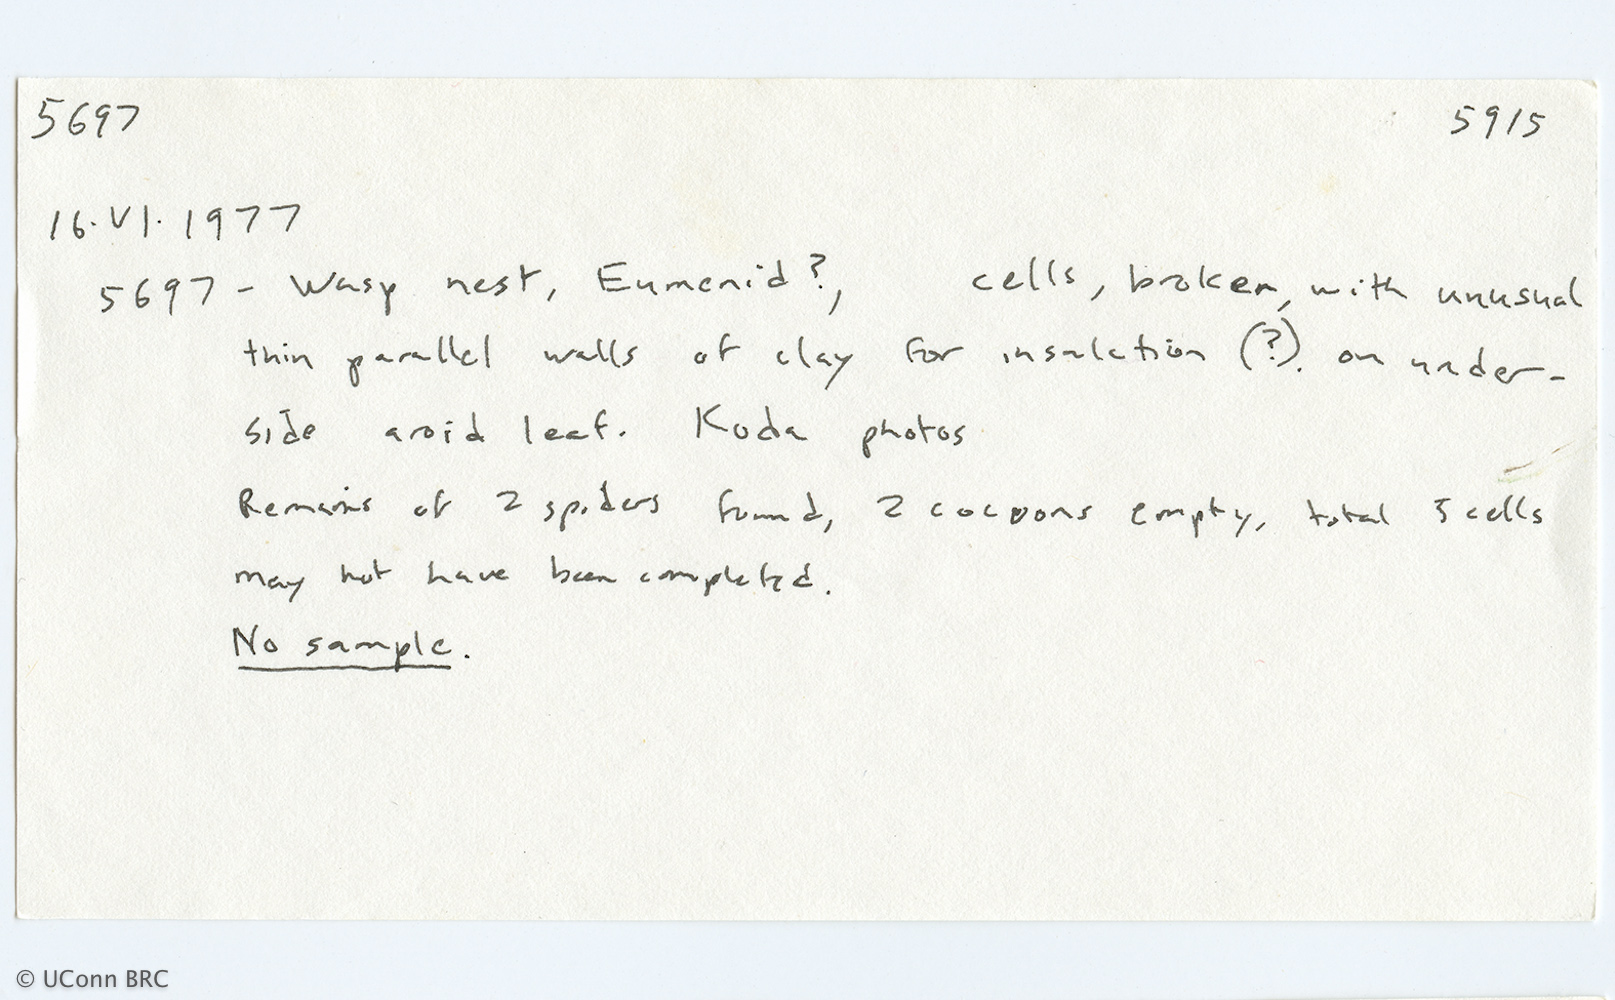 5697 5915
16.VI.1977
5697 - Wasp nest, Eumenid?, cells, broken, with unusual
thin parallel walls of clay for insulation (?). on under-
side aroid leaf. Koda photos
Remains of 2 spiders found, 2 cocoons empty, total 5 cells
may not have been completed.
No sample.
© UConn BRC